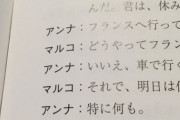 んだ。君は、休み
アンナ：フランスへ行って
マルコ：どうやってフラン
アンナ：いいえ、車で行く
マルコ：それで、明日は何
アンナ：特に何も。